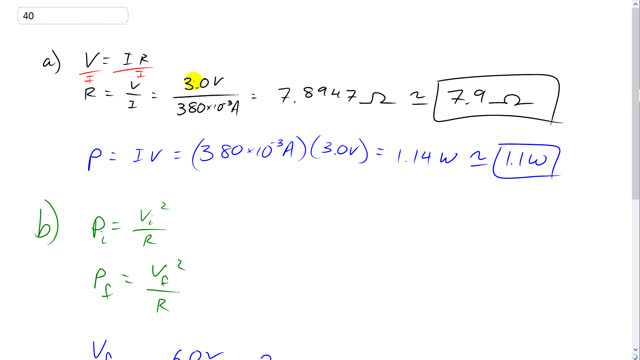 40
a) V = I R
I I
R = V/I = 3.0V / 380×10⁻³A = 7.8947Ω ≃ 7.9 Ω
P = I V = (380×10⁻³A)(3.0V) = 1.14W ≃ 1.1W
b) Pᵢ = Vᵢ²/R
P_f = V_f²/R